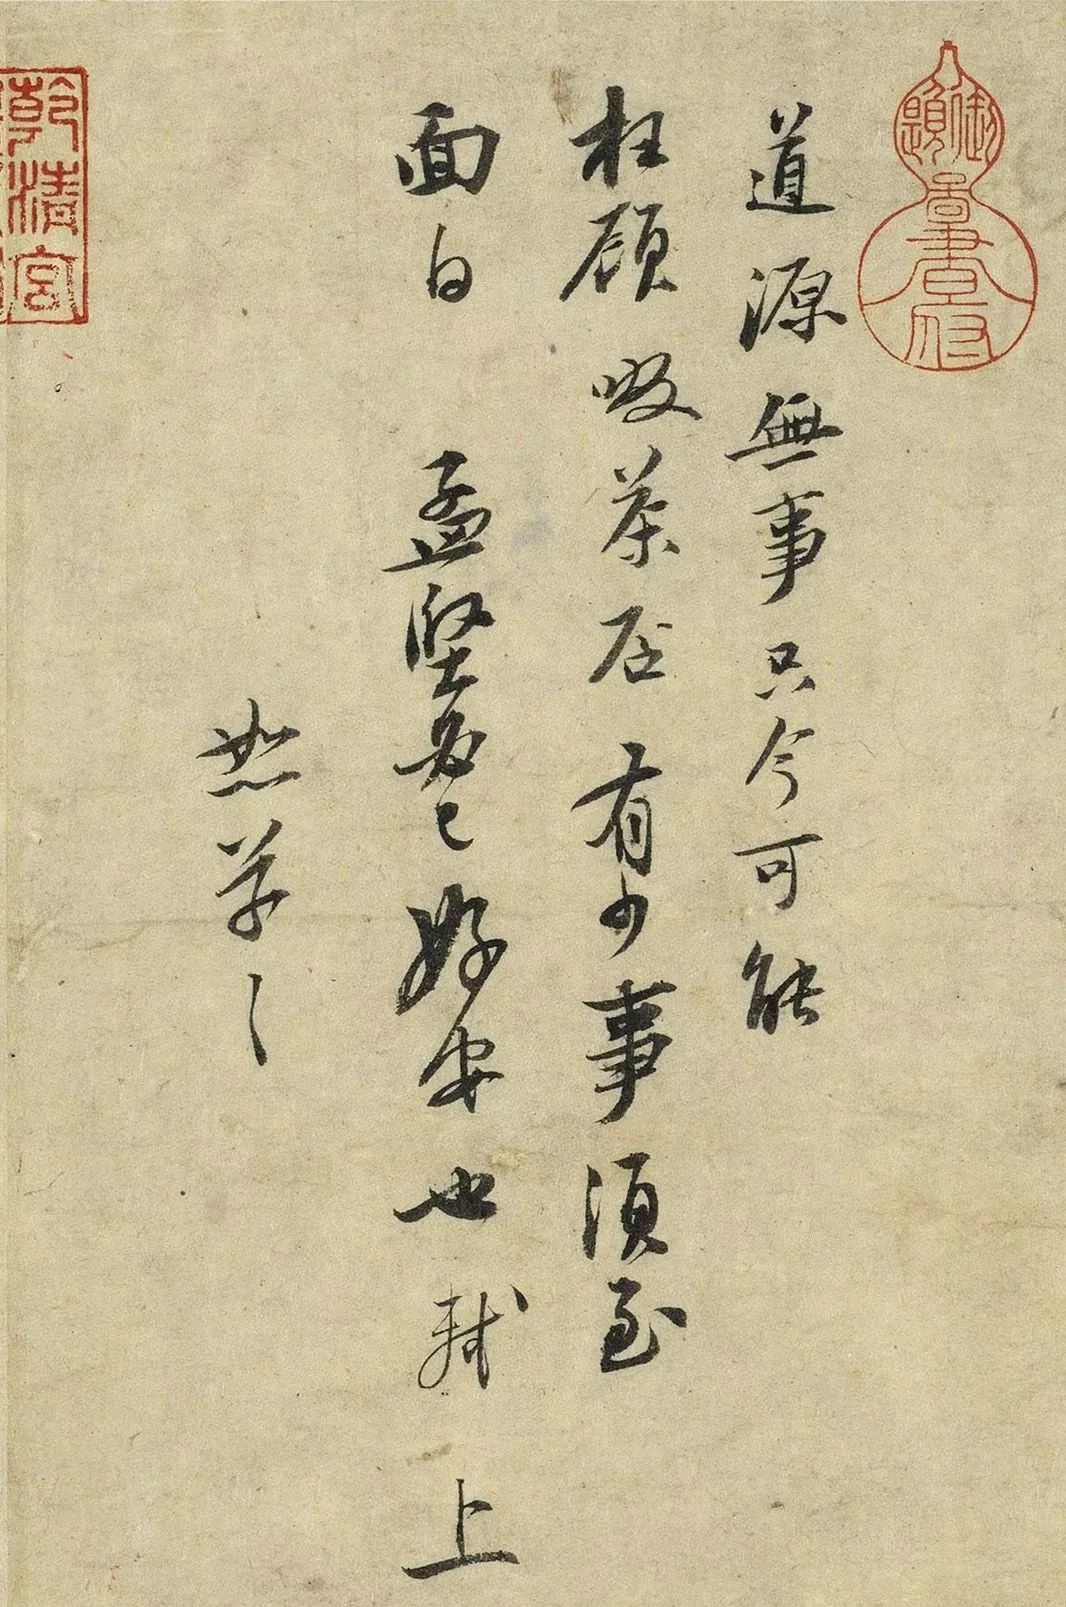 道源無事只今可能
枉顧啜茶否有少事須至
面白孟堅必已好安也軾上
恕草々
乾清宮
御題
圖書府